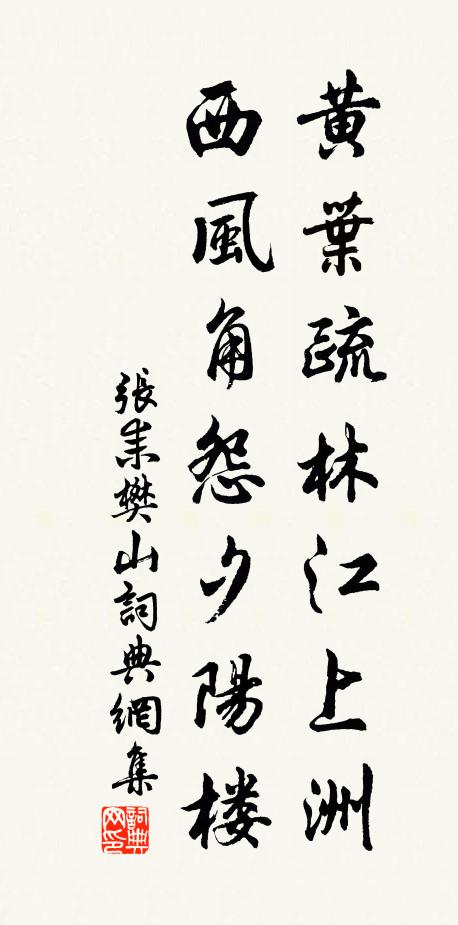 黃葉疏林江上洲
西風角怨夕陽楼
張耒樊山詞典網集
詞典网印